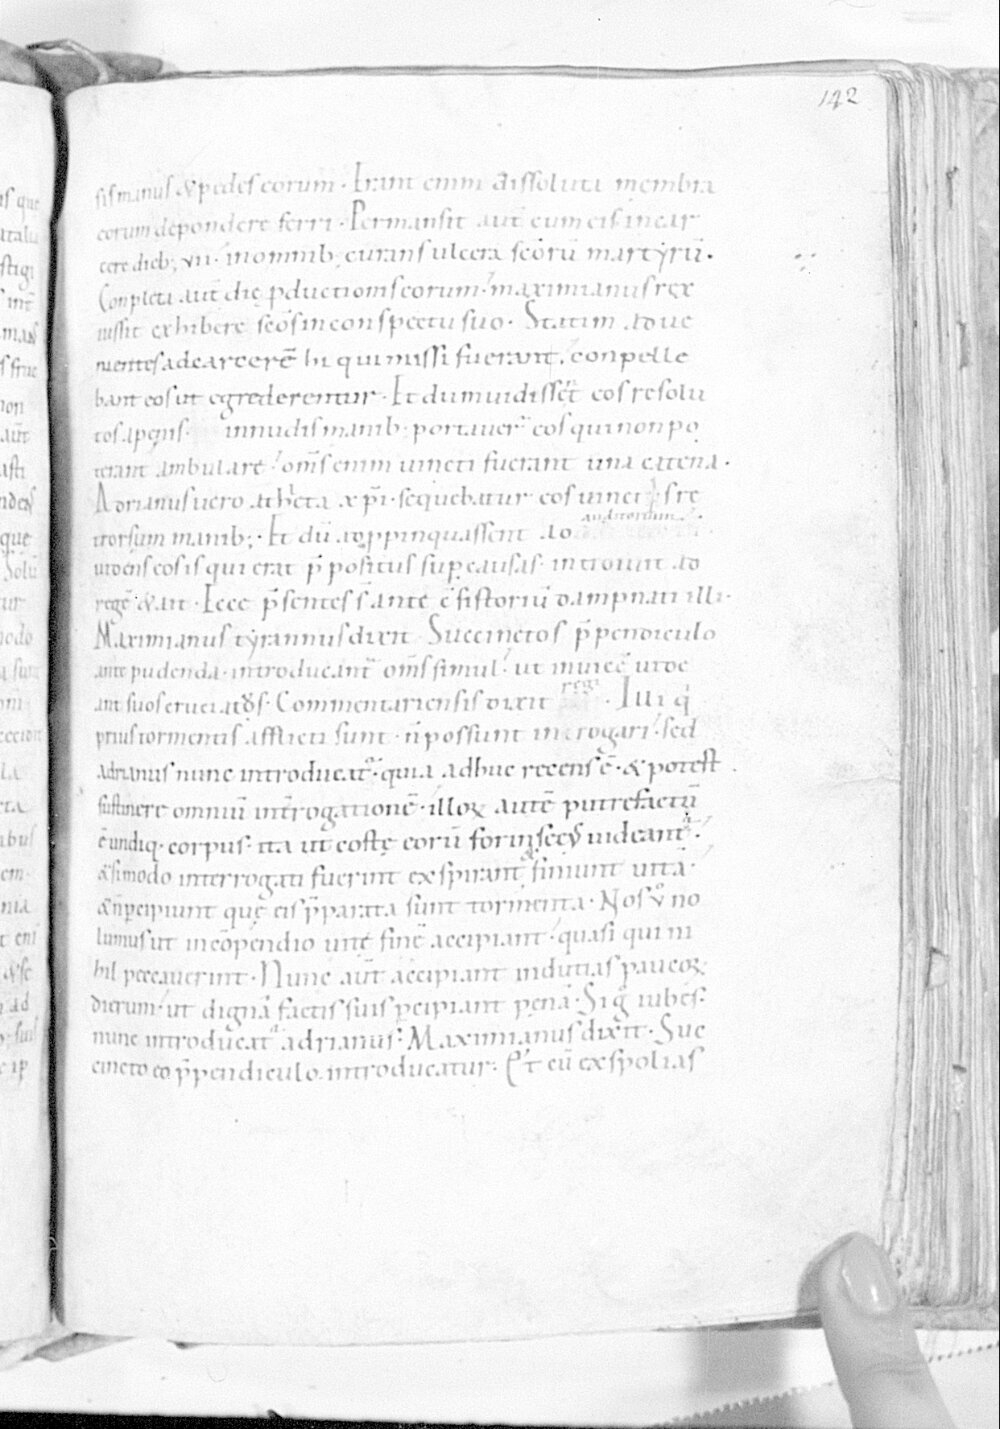 142
sis manus & pedes eorum · Erant enim dissoluta membra
eorum depondere ferri · Permansit aut̄ cum eis in car
cere dieb; vii · in omnib; curans ulcera sc̄orū martyrū·
Conpleta aut̄ die p̄ductionis eorum · maximianus rex
iussit exhibere sc̄os in conspectu suo · Statim adue
nientes ad carcerē hi qui missi fuerant, conpelle
bant eos ut egrederentur · Et dum uidissēt eos resolu
tos apenis innudis manib; portauer̄ eos qui non po
terant ambulare · om̄s enim uincti fuerant una catena ·
Adrianus uero athleta xp̄i · sequebatur eos uinctis re
trorsum manib; · Et dū appinquassent ad auditorium
uidens eos is qui erat p̄positus sup causas · introiuit ad
regē & ait · Ecce p̄sentes s̄ ante c̄sistoriū dampnati illi ·
Maximianus tyrannus dixit · Succinctos p̄pendiculo
ante pudenda · introducant̄ om̄s simul · ut inuicē uide
ant suos cruciatus · Commentariensis dixit regi · Illi q
prius tormentis afflicti sunt · n̄ possunt interrogari · sed
adrianus nunc introducat̄ · quia adhuc recens ē · & potest
sustinere omniū int̄rogationē · illoꝝ autē putrefactū
ē undiq; corpus · ita ut coste eorū forinsecus uideant̄ ·
& si modo interrogati fuerint exspirant & finiunt uita ·
& n̄ p̄cipiunt quę eis p̄parata sunt tormenta · Nos v̊ no
lumus ut incōpendio uite finē accipiant · quasi qui ni
hil peccauerint · Nunc aut̄ accipiant indutias paucoꝝ
dierum · ut dignā factis suis p̄cipiant pęnā · Sig iubes ·
nunc introducat̄ adrianus · Maximianus dixit · Suc
cincto eo p̄pendiculo · introducatur · Et eū exspolias